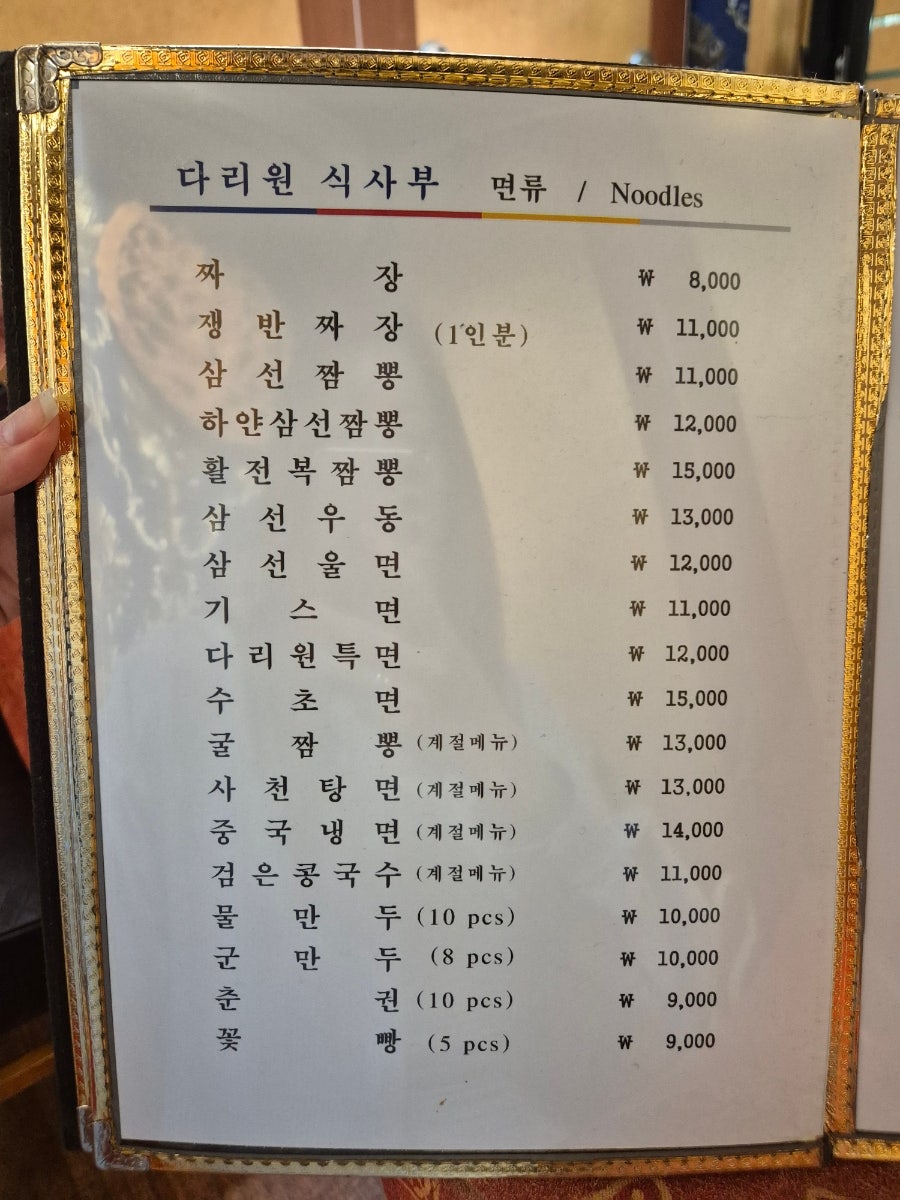 다리원 식사부 면류 / Noodles
짜장 ₩ 8,000
쟁반짜장 (1인분) ₩ 11,000
삼선짬뽕 ₩ 11,000
하얀삼선짬뽕 ₩ 12,000
활전복짬뽕 ₩ 15,000
삼선우동 ₩ 13,000
삼선울면 ₩ 12,000
기스면 ₩ 11,000
다리원특면 ₩ 12,000
수초면 ₩ 15,000
굴짬뽕 (계절메뉴) ₩ 13,000
사천탕면 (계절메뉴) ₩ 13,000
중국냉면 (계절메뉴) ₩ 14,000
검은콩국수 (계절메뉴) ₩ 11,000
물만두 (10 pcs) ₩ 10,000
군만두 (8 pcs) ₩ 10,000
춘권 (10 pcs) ₩ 9,000
꽃빵 (5 pcs) ₩ 9,000